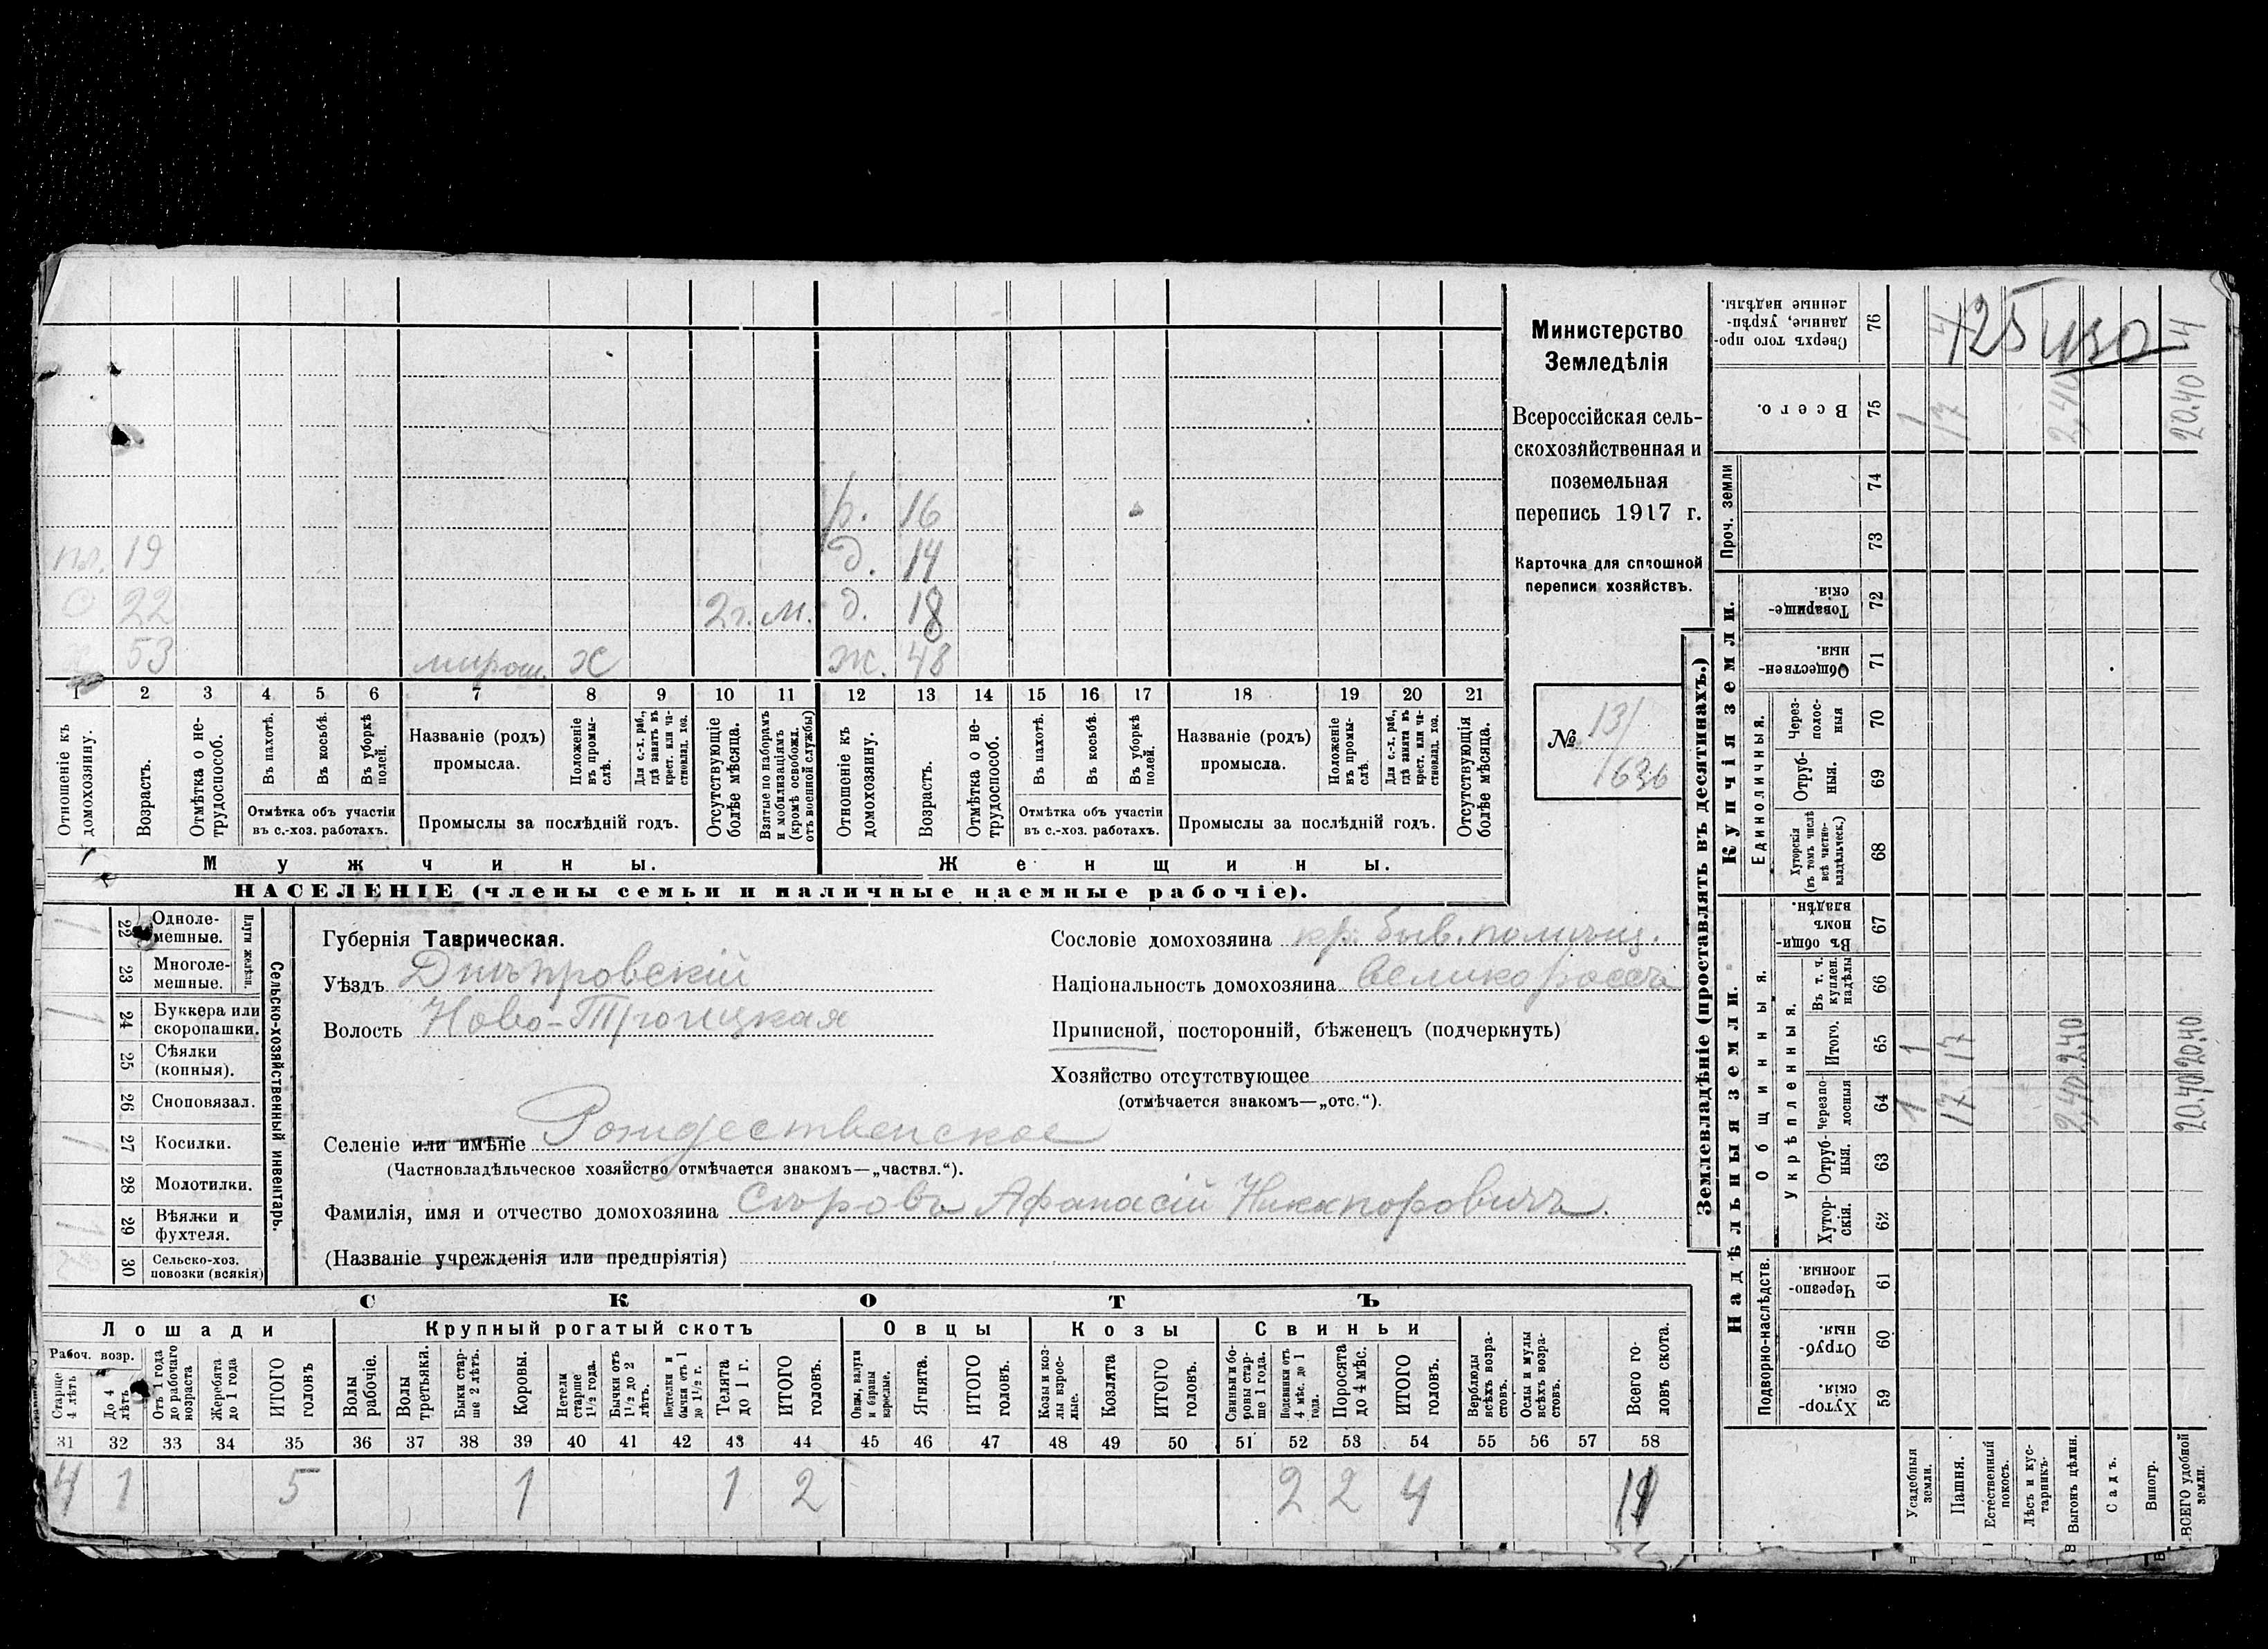 Министерство
Земледѣлія
Всероссійская сель-
скохозяйственная и
поземельная
перепись 1917 г.
Карточка для сплошной
переписи хозяйствъ.
№ 13/
1636
р. 16
пл. 19 д. 14
с 22 2 г. м. д. 18
х 53 мирош. х ж. 48
1 2 3 4 5 6 7 8 9 10 11 12 13 14 15 16 17 18 19 20 21
Отношеніе къ домохозяину.
Возрастъ.
Отмѣтка о не-трудоспособ.
Въ пахотѣ.
Въ косьбѣ.
Въ уборкѣ полей.
Отмѣтка объ участіи въ с.-хоз. работахъ.
Названіе (родъ) промысла.
Положеніе въ промы-слѣ.
Для с.-х. раб., гдѣ занятъ въ крест. или ча-стновлад. хоз.
Промыслы за послѣдній годъ.
Отсутствующіе болѣе мѣсяца.
Взятые по наборамъ и мобилизаціямъ (кромѣ освобожд. отъ военной службы)
Отношеніе къ домохозяину.
Возрастъ.
Отмѣтка о не-трудоспособ.
Въ пахотѣ.
Въ косьбѣ.
Въ уборкѣ полей.
Отмѣтка объ участіи въ с.-хоз. работахъ.
Названіе (родъ) промысла.
Положеніе въ промы-слѣ.
Для с.-х. раб., гдѣ занята въ крест. или ча-стновлад. хоз.
Промыслы за послѣдній годъ.
Отсутствующія болѣе мѣсяца.
Мужчины. Женщины.
НАСЕЛЕНІЕ (члены семьи и наличные наемные рабочіе).
Сельско-хозяйственный инвентарь.
Плуги желѣзн.
1 22 Одноле-мешные.
23 Многоле-мешные.
1 24 Буккера или скоропашки.
25 Сѣялки (конныя).
26 Сноповязал.
1 27 Косилки.
28 Молотилки.
1 29 Вѣялки и фухтеля.
30 Сельско-хоз. повозки (всякія)
Губернія Таврическая.
Уѣздъ Днѣпровскій
Волость Ново-Троицкая
Сословіе домохозяина кр. быв. помѣщ.
Національность домохозяина великороссъ
Приписной, посторонній, бѣженецъ (подчеркнуть)
Хозяйство отсутствующее
(отмѣчается знакомъ—„отс.“).
Селеніе или имѣніе Рождественское
(Частновладѣльческое хозяйство отмѣчается знакомъ—„частвл.“).
Фамилія, имя и отчество домохозяина Сѣровъ Афанасій Никифоровичъ.
(Названіе учрежденія или предпріятія)
СКОТЪ
Лошади Крупный рогатый скотъ Овцы Козы Свиньи
Рабоч. возр.
Старше 4 лѣтъ
До 4 лѣтъ
Отъ 1 года до рабочаго возраста
Жеребята до 1 года
ИТОГО головъ
Волы рабочіе.
Волы третьяки.
Быки стар-ше 2 лѣтъ.
Коровы.
Нетели старше 1 1/2 года.
Бычки отъ 1 1/2 до 2 лѣтъ.
Подтелки и бычки отъ 1 до 1 1/2 г.
Телята до 1 г.
ИТОГО головъ.
Овцы, валухи и бараны взрослые.
Ягнята.
ИТОГО головъ.
Козы и коз-лы взрос-лые.
Козлята
ИТОГО головъ.
Свиньи и бо-ровы стар-ше 1 года.
Подсвинки отъ 4 мѣс. до 1 года.
Поросята до 4 мѣс.
ИТОГО головъ.
Верблюды всѣхъ возра-стовъ.
Ослы и мулы всѣхъ возра-стовъ.
Всего го-ловъ скота.
31 32 33 34 35 36 37 38 39 40 41 42 43 44 45 46 47 48 49 50 51 52 53 54 55 56 57 58
4 1 5 1 1 2 2 2 4 11
Землевладѣніе (проставлять въ десятинахъ.)
Надѣльныя земли. Купчія земли.
Подворно-наслѣдств.
Общинныя.
Укрѣпленныя.
Единоличныя.
Проч. земли
Сверхъ того про-данные, укрѣп-ленные надѣлы. 76
Всего. 75
74
73
Товарище-скія. 72
Обществен-ныя. 71
Через-полос-ныя 70
Отруб-ныя. 69
Хуторскія (въ томъ числѣ всѣ частно-владѣльческ.) 68
Въ общин-номъ владѣн. 67
Въ т. ч. куплен. надѣлы 66
Итого. 65
Черезпо-лосныя 64
Отруб-ныя. 63
Хутор-скія. 62
Черезпо-лосныя. 61
Отруб-ныя. 60
Хутор-скія. 59
Усадебныя земли. 1 1 1
Пашня. 17 17 17 4
Естественный покосъ.
Лѣсъ и кус-тарникъ.
Выгонъ цѣлин. 2,40 2,40 2,40
Садъ.
Виногр.
ВСЕГО удобной земли. 20.40 20.40 20.40 4
425 430